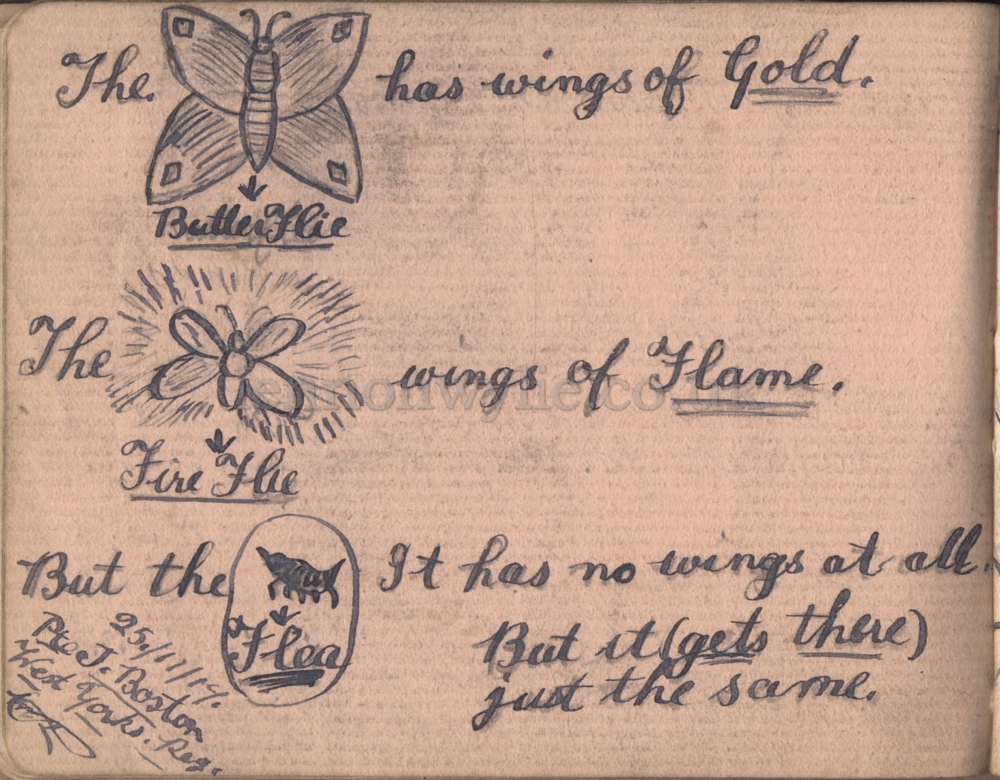 The. has wings of Gold.
ButterFlie
The wings of Flame.
Fire Flie
But the It has no wings at all.
Flea
But it (gets there)
just the same.
25/11/17.
Pte J. Boston
West Yorks. Reg.